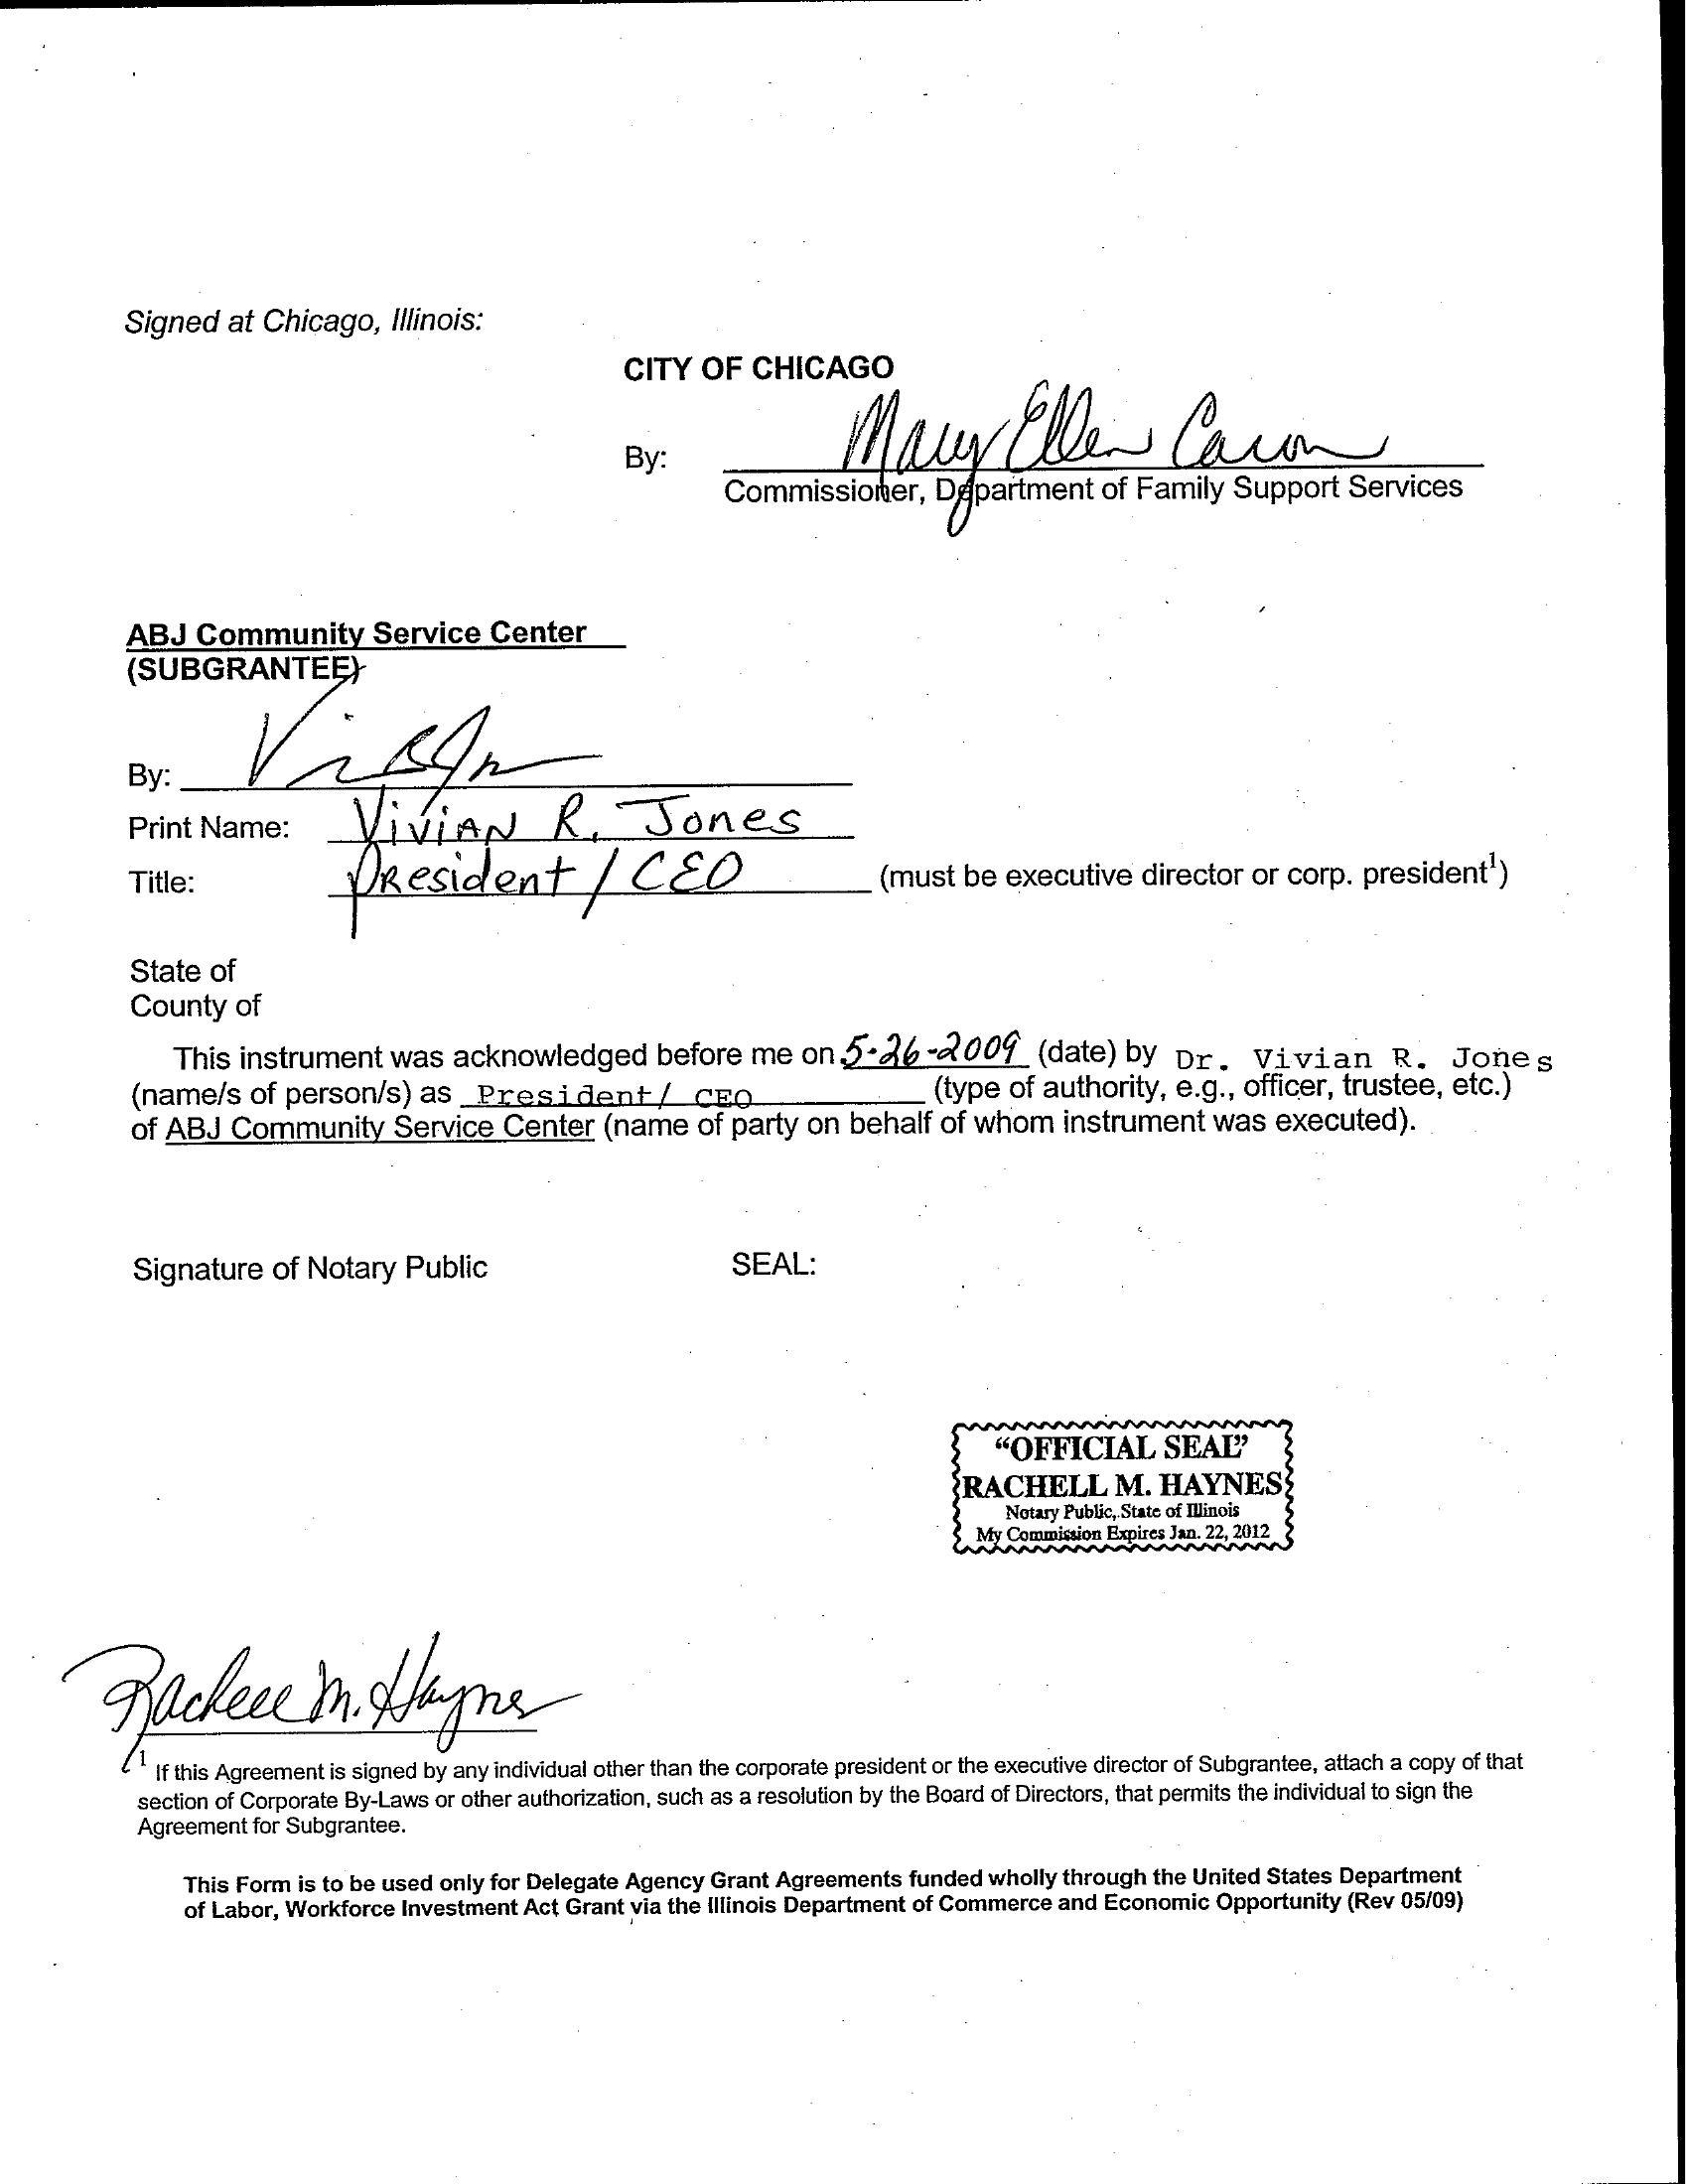 Signed at Chicago, Illinois:
CITY OF CHICAGO
Mary Ellen Caron
By:
Commissioner, Department of Family Support Services
ABJ Community Service Center
(SUBGRANTEE)
By:
Print Name: Vivian R. Jones
Title: President / CEO (must be executive director or corp. president¹)
State of
County of
This instrument was acknowledged before me on 5-26-2009 (date) by Dr. Vivian R. Jones
(name/s of person/s) as President/ CEO (type of authority, e.g., officer, trustee, etc.)
of ABJ Community Service Center (name of party on behalf of whom instrument was executed).
Signature of Notary Public SEAL:
“OFFICIAL SEAL”
RACHELL M. HAYNES
Notary Public, State of Illinois
My Commission Expires Jan. 22, 2012
Rachell M. Haynes
¹ If this Agreement is signed by any individual other than the corporate president or the executive director of Subgrantee, attach a copy of that
section of Corporate By-Laws or other authorization, such as a resolution by the Board of Directors, that permits the individual to sign the
Agreement for Subgrantee.
This Form is to be used only for Delegate Agency Grant Agreements funded wholly through the United States Department
of Labor, Workforce Investment Act Grant via the Illinois Department of Commerce and Economic Opportunity (Rev 05/09)